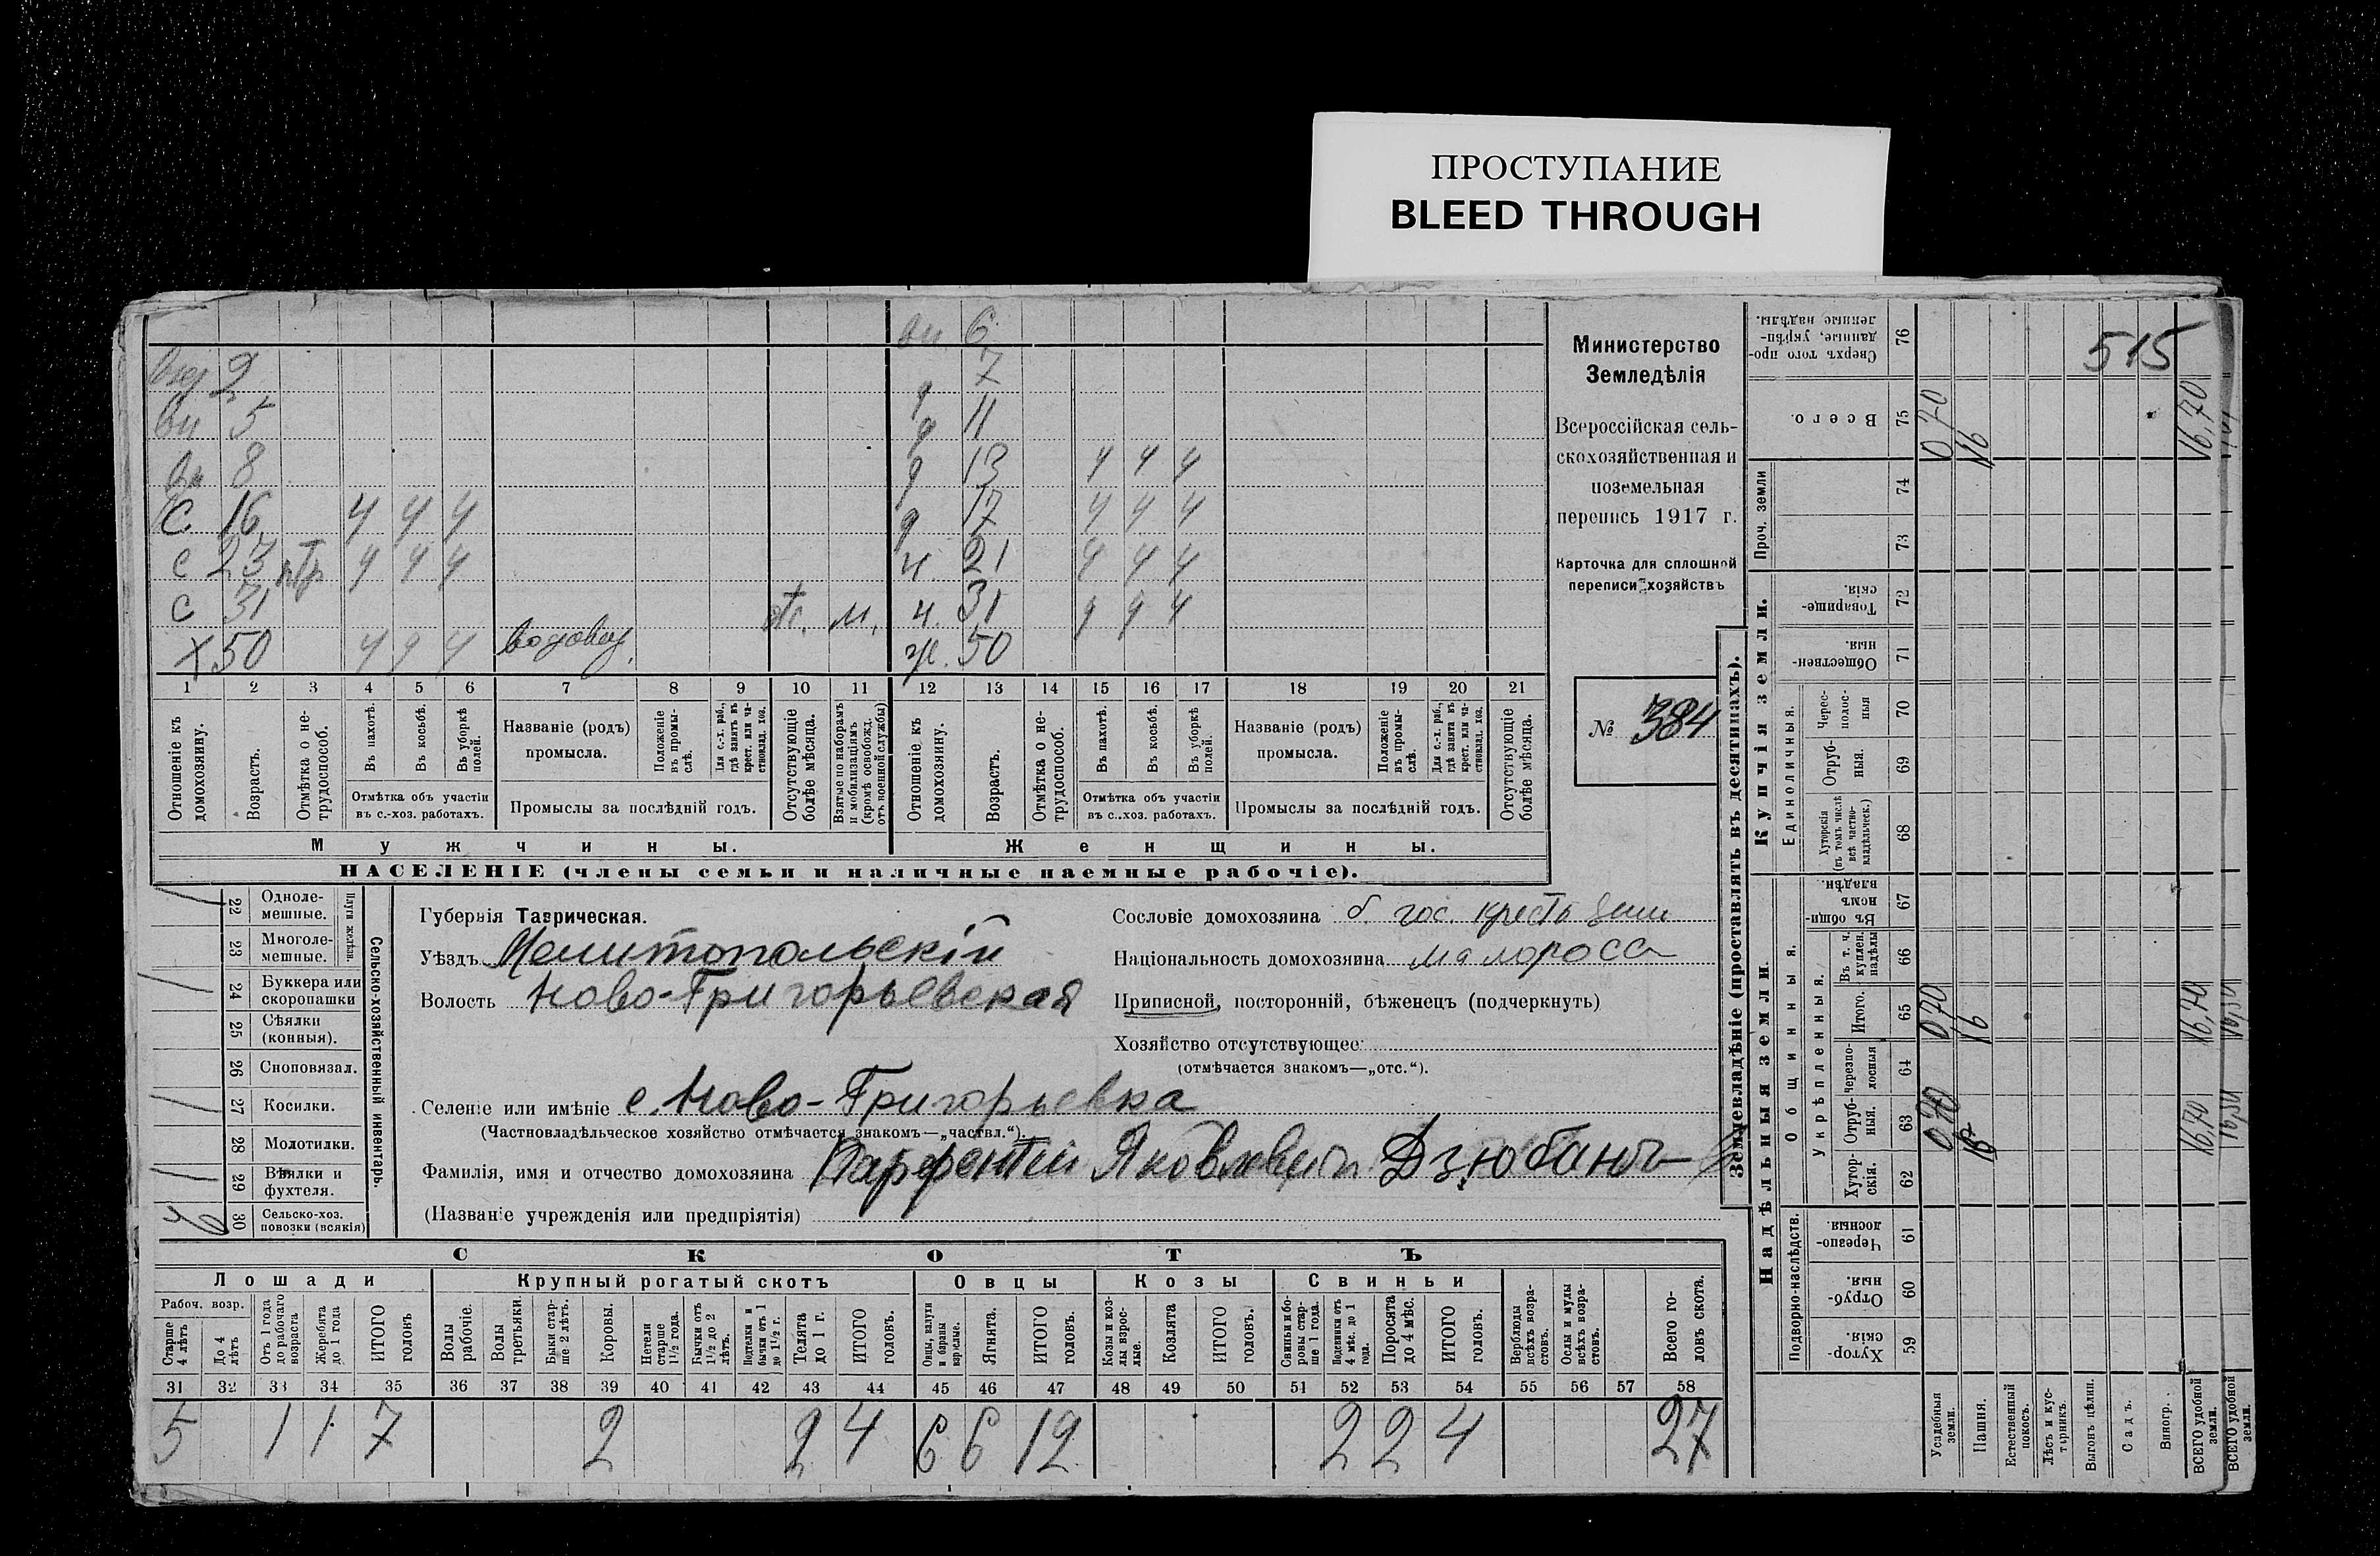 ПРОСТУПАНИЕ
BLEED THROUGH
515
вн 6
2 д 7
вн 5 д 11
вн 8 д 13 ч ч ч
С 16 ч ч ч д 17 ч ч ч
с 23 ч ч ч н. 21 ч ч ч
С 31 отс. м. н. 31 ч ч ч
х 50 ч ч ч ж. 50
1 2 3 4 5 6 7 8 9 10 11 12 13 14 15 16 17 18 19 20 21
Отношеніе къ домохозяину.
Возрастъ.
Отмѣтка о нетрудоспособ.
Въ пахотѣ.
Въ косьбѣ.
Въ уборкѣ полей.
Отмѣтка объ участіи въ с.-хоз. работахъ.
Названіе (родъ) промысла.
Положеніе въ промыслѣ.
Для с.-х. раб., гдѣ занятъ въ крест. или частновлад. хоз.
Промыслы за послѣдній годъ.
Отсутствующіе болѣе мѣсяца.
Взятые по наборамъ и мобилизаціямъ (кромѣ освобожд. отъ военной службы)
Отношеніе къ домохозяину.
Возрастъ.
Отмѣтка о нетрудоспособ.
Въ пахотѣ.
Въ косьбѣ.
Въ уборкѣ полей.
Отмѣтка объ участіи въ с.-хоз. работахъ.
Названіе (родъ) промысла.
Положеніе въ промыслѣ.
Для с.-х. раб., гдѣ занята въ крест. или частновлад. хоз.
Промыслы за послѣдній годъ.
Отсутствующіе болѣе мѣсяца.
Мужчины.
Женщины.
НАСЕЛЕНІЕ (члены семьи и наличные наемные рабочіе).
Министерство
Земледѣлія
Всероссійская сель-
скохозяйственная и
поземельная
перепись 1917 г.
Карточка для сплошной
переписи хозяйствъ
№ 384
22 Одноле-
мешные.
23 Многоле-
мешные.
Плуги желѣзн.
24 Буккера или
скоропашки
25 Сѣялки
(конныя).
26 Сноповязал.
27 Косилки.
28 Молотилки.
29 Вѣялки и
фухтеля.
30 Сельско-хоз.
повозки (всякія)
6
Сельско-хозяйственный инвентарь.
Губернія Таврическая.
Уѣздъ Мелитопольскій
Волость Ново-Григорьевская
Селеніе или имѣніе с. Ново-Григорьевка
(Частновладѣльческое хозяйство отмѣчается знакомъ—„частвл.“).
Фамилія, имя и отчество домохозяина Парфентій Яковлевич Дзюбанъ
(Названіе учрежденія или предпріятія)
Сословіе домохозяина б. гос.
Національность домохозяина малоросс
Приписной, посторонній, бѣженецъ (подчеркнуть)
Хозяйство отсутствующее
(отмѣчается знакомъ—„отс.“).
СКОТЪ
Лошади
Крупный рогатый скотъ
Овцы
Козы
Свиньи
Рабоч. возр.
Старше 4 лѣтъ
До 4 лѣтъ
Отъ 1 года до рабочаго возраста
Жеребята до 1 года
ИТОГО головъ
Волы рабочіе.
Волы третьяки.
Быки старше 2 лѣтъ.
Коровы.
Нетели старше 1½ года.
Бычки отъ 1½ до 2 лѣтъ.
Подтелки и бычки отъ 1 до 1½ г.
Телята до 1 г.
ИТОГО головъ.
Овцы, валухи и бараны взрослые.
Ягнята.
ИТОГО головъ.
Козы и козлы взрослые.
Козлята
ИТОГО головъ.
Свиньи и боровы старше 1 года.
Подсвинки отъ 4 мѣс. до 1 года.
Поросята до 4 мѣс.
ИТОГО головъ.
Верблюды всѣхъ возрастовъ.
Ослы и мулы всѣхъ возрастовъ.
Всего головъ скота.
31 32 33 34 35 36 37 38 39 40 41 42 43 44 45 46 47 48 49 50 51 52 53 54 55 56 57 58
5 1 1 7 2 2 4 6 6 12 2 2 4 27
Землевладѣніе (проставлять въ десятинахъ).
Надѣльныя земли.
Купчія земли.
Проч. земли
Подворно-наслѣдств.
Общинныя.
Укрѣпленныя.
Единоличныя.
Сверхъ того проданные, укрѣпленные надѣлы. 76
Всего. 75 0,70 16 16,70
74
73
Товарищескія. 72
Общественныя 71
Чересполосныя 70
Отрубныя. 69
Хуторскія (въ томъ числѣ всѣ частновладѣльческ.) 68
Въ общинномъ владѣн. 67
Въ т. ч. куплен. надѣлы 66
Итого. 65 0,70 16 16,70
Черезполосныя 64
Отрубныя. 63 0,70 16 16,70
Хуторскія. 62
Черезполосныя. 61
Отрубныя. 60
Хуторскія. 59
Усадебныя земли.
Пашня.
Естественный покосъ.
Лѣсъ и кустарникъ.
Выгонъ цѣлин.
Садъ.
Виногр.
ВСЕГО удобной земли.
ВСЕГО удобной земли.